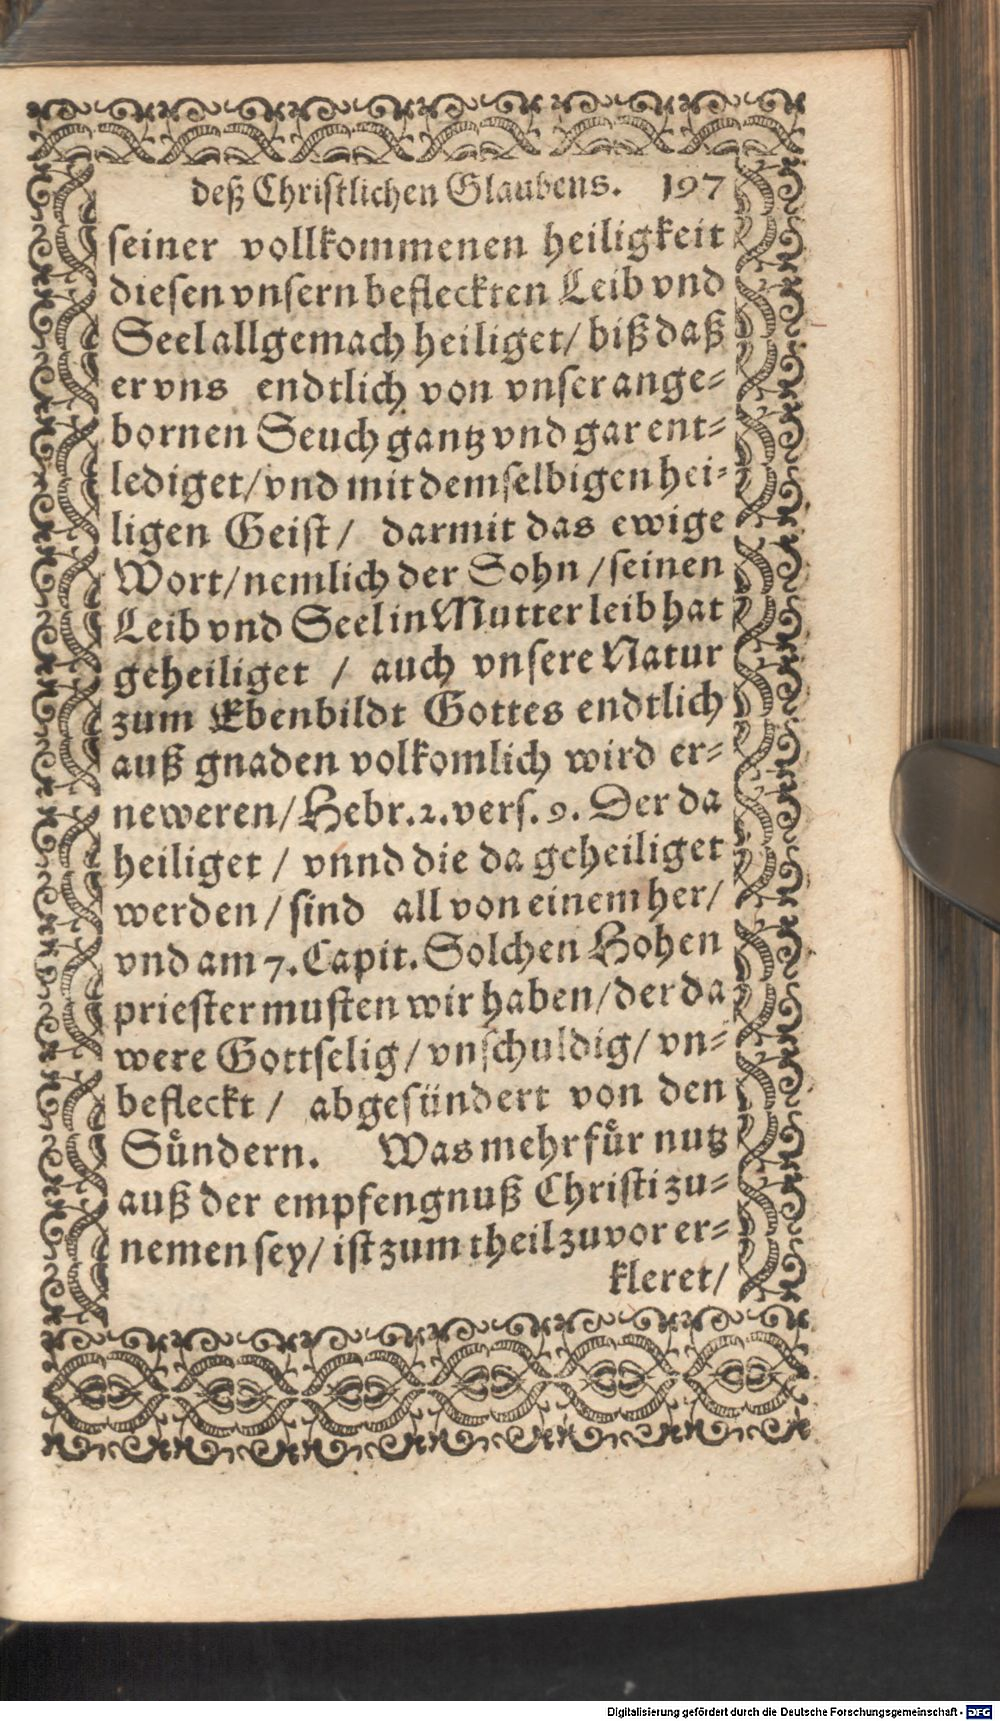 deß Christlichen Glaubens. 197
seiner vollkommenen heiligkeit
diesen vnsern befleckten Leib vnd
Seel allgemach heiliget/ biß daß
er vns endtlich von vnser ange-
bornen Seuch gantz vnd gar ent-
lediget/ vnd mit demselbigen hei-
ligen Geist/ darmit das ewige
Wort/ nemlich der Sohn/ seinen
Leib vnd Seel in Mutter leib hat
geheiliget / auch vnsere Natur
zum Ebenbildt Gottes endtlich
auß gnaden volkomlich wird er-
neweren/ Hebr. 2. vers. 9. Der da
heiliget / vnnd die da geheiliget
werden/ sind all von einem her/
vnd am 7. Capit. Solchen Hohen
priester musten wir haben/ der da
were Gottselig/ vnschuldig/ vn-
befleckt/ abgesündert von den
Sündern. Was mehr für nutz
auß der empfengnuß Christi zu-
nemen sey/ ist zum theil zuvor er-
kleret/
Digitalisierung gefördert durch die Deutsche Forschungsgemeinschaft - DFG